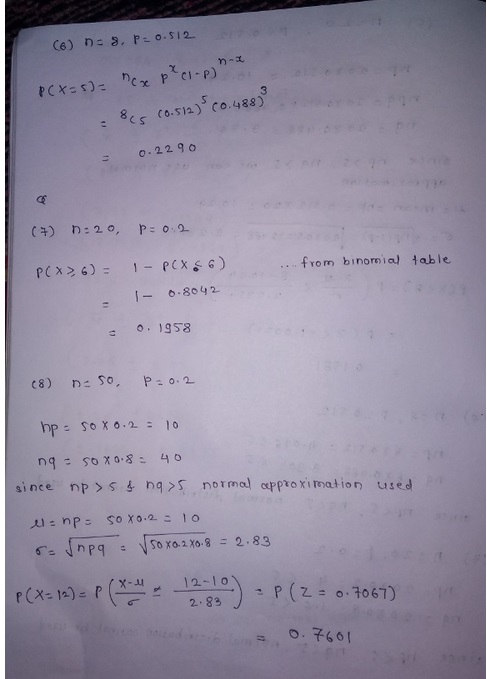 (6) n = 8, P = 0.512
P(X=5) = nCx p^x (1-p)^n-x
= 8C5 (0.512)^5 (0.488)^3
= 0.2290
(7) n = 20, P = 0.2
P(X ≥ 6) = 1 - P(X < 6) ... from binomial table
= 1 - 0.8042
= 0.1958
(8) n = 50, P = 0.2
np = 50 X 0.2 = 10
nq = 50 X 0.8 = 40
since np > 5 & nq > 5 normal approximation used
μ = np = 50 X 0.2 = 10
σ = √npq = √50 X 0.2 X 0.8 = 2.83
P(X=12) = P(X-μ/σ = 12-10/2.83) = P(Z = 0.7067)
= 0.7601